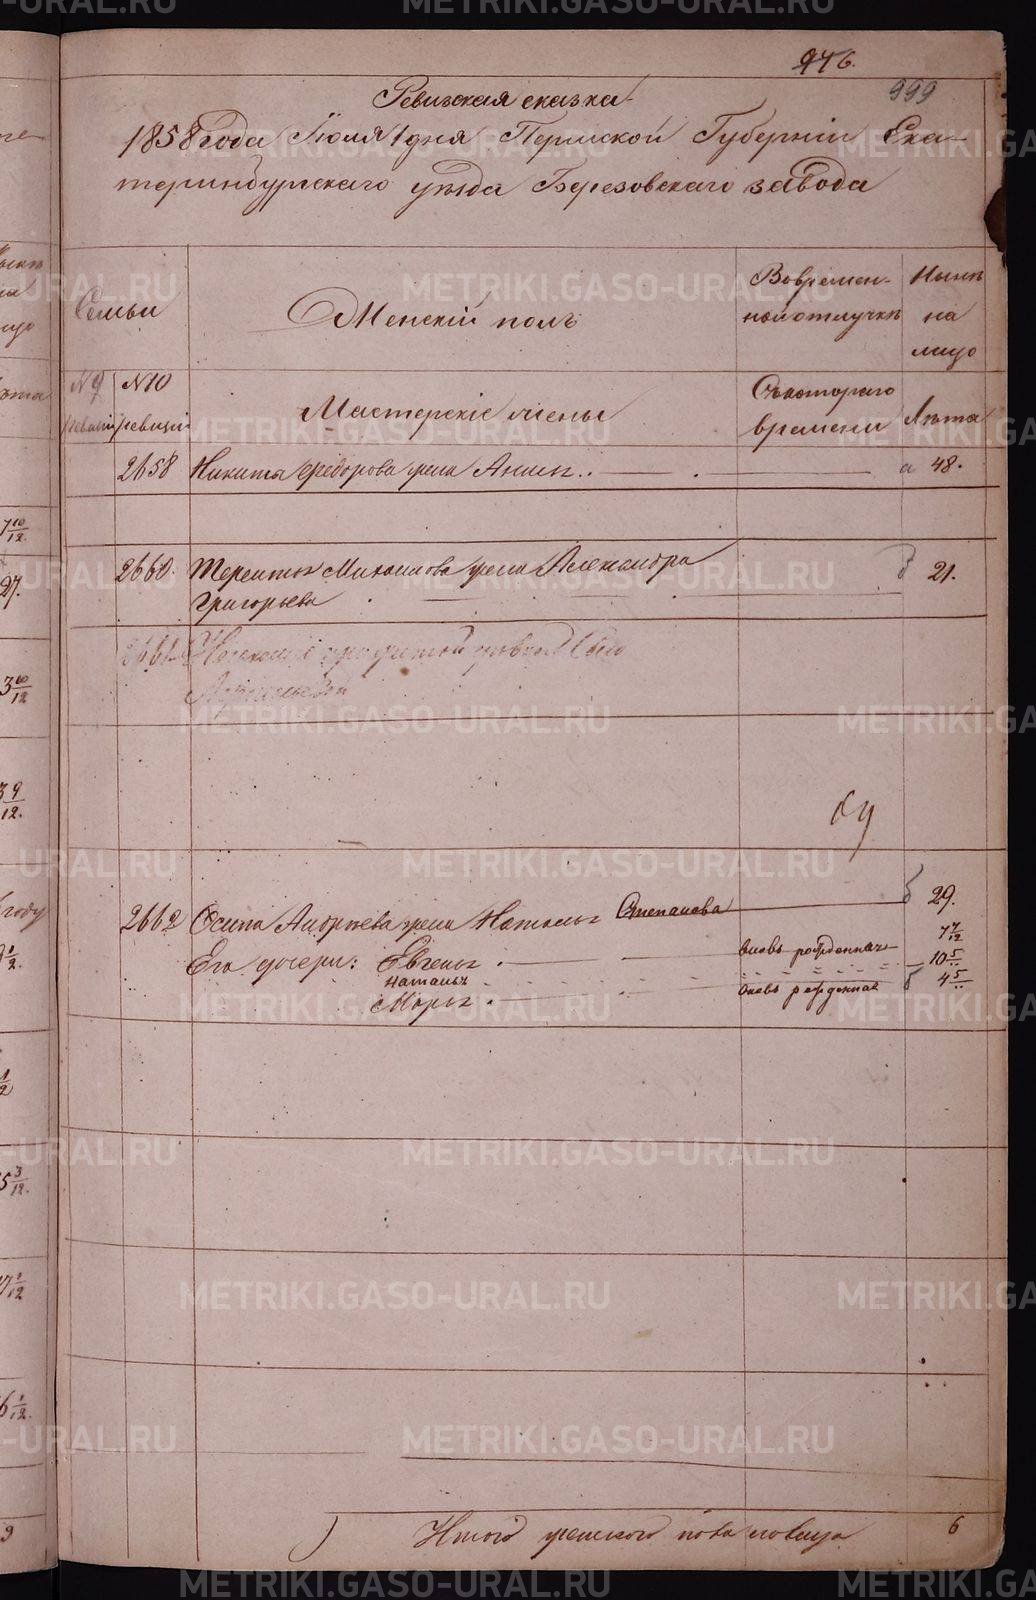 976.
999
Ревизская сказка
1858 года Июля 1 дня Пермской Губернии Ека-
теринбургскаго уѣзда Березовскаго завода
Семьи
Женскій полъ
Вовремен-
ной отлучкѣ
Нынѣ
на
лицо
№ 9 ревизіи
№ 10 ревизіи
Мастерскіе жены
Съкотораго
времени
Лѣта
2658 Никиты Федорова жена Анна 48.
2660. Терентья Михайлова жена Александра 21.
Григорьева
2661
2662 Осипа Андреева жена Наталья Степанова 29.
Его дочери: Евгенья вновь рожденная 7 7/12
Наталья 10 5/12
Марья вновь рожденная 4 5/12
Итого женского пола налицо 6
METRIKI.GASO-URAL.RU